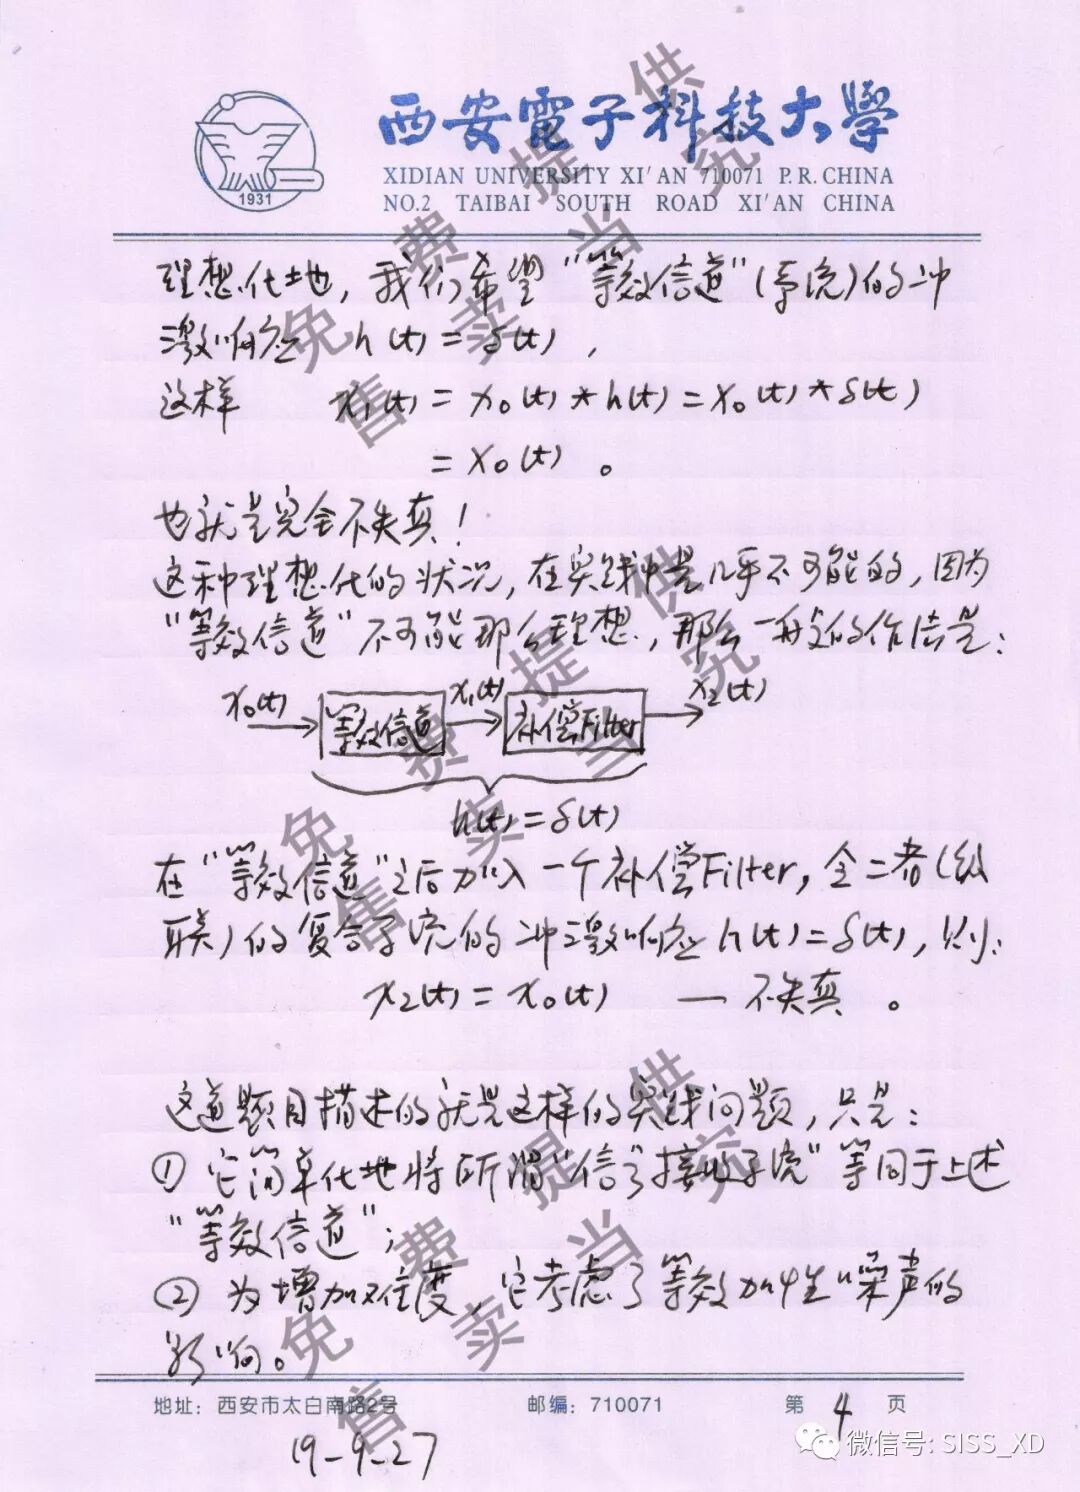 西安電子科技大學
XIDIAN UNIVERSITY XI'AN 710071 P.R.CHINA
NO.2 TAIBAI SOUTH ROAD XI'AN CHINA
1931
理想化地，我们希望“等效信道”(系统)的冲
激响应 h(t)=δ(t)，
这样 x₁(t)=x₀(t)*h(t)=x₀(t)*δ(t)
=x₀(t)。
也就是完全不失真！
这种理想化的状况，在实践中是几乎不可能的，因为
“等效信道”不可能那么理想，那么一般的作法是：
x₀(t) 等效信道 x₁(t) 补偿Filter x₂(t)
h(t)=δ(t)
在“等效信道”之后加入一个补偿Filter，令二者(级
联)的复合系统的冲激响应h(t)=δ(t)，则：
x₂(t)=x₀(t) — 不失真。
这道题目描述的就是这样的实践问题，只是：
① 它简单化地将所谓“信号接收系统”等同于上述
“等效信道”；
② 为增加难度，它考虑了等效加性噪声的
影响。
地址：西安市太白南路2号 邮编：710071 第 4 页
19-9-27
微信号: SISS_XD
免费提供
售卖当究
免费提供
售卖当究
免费提供
售卖当究